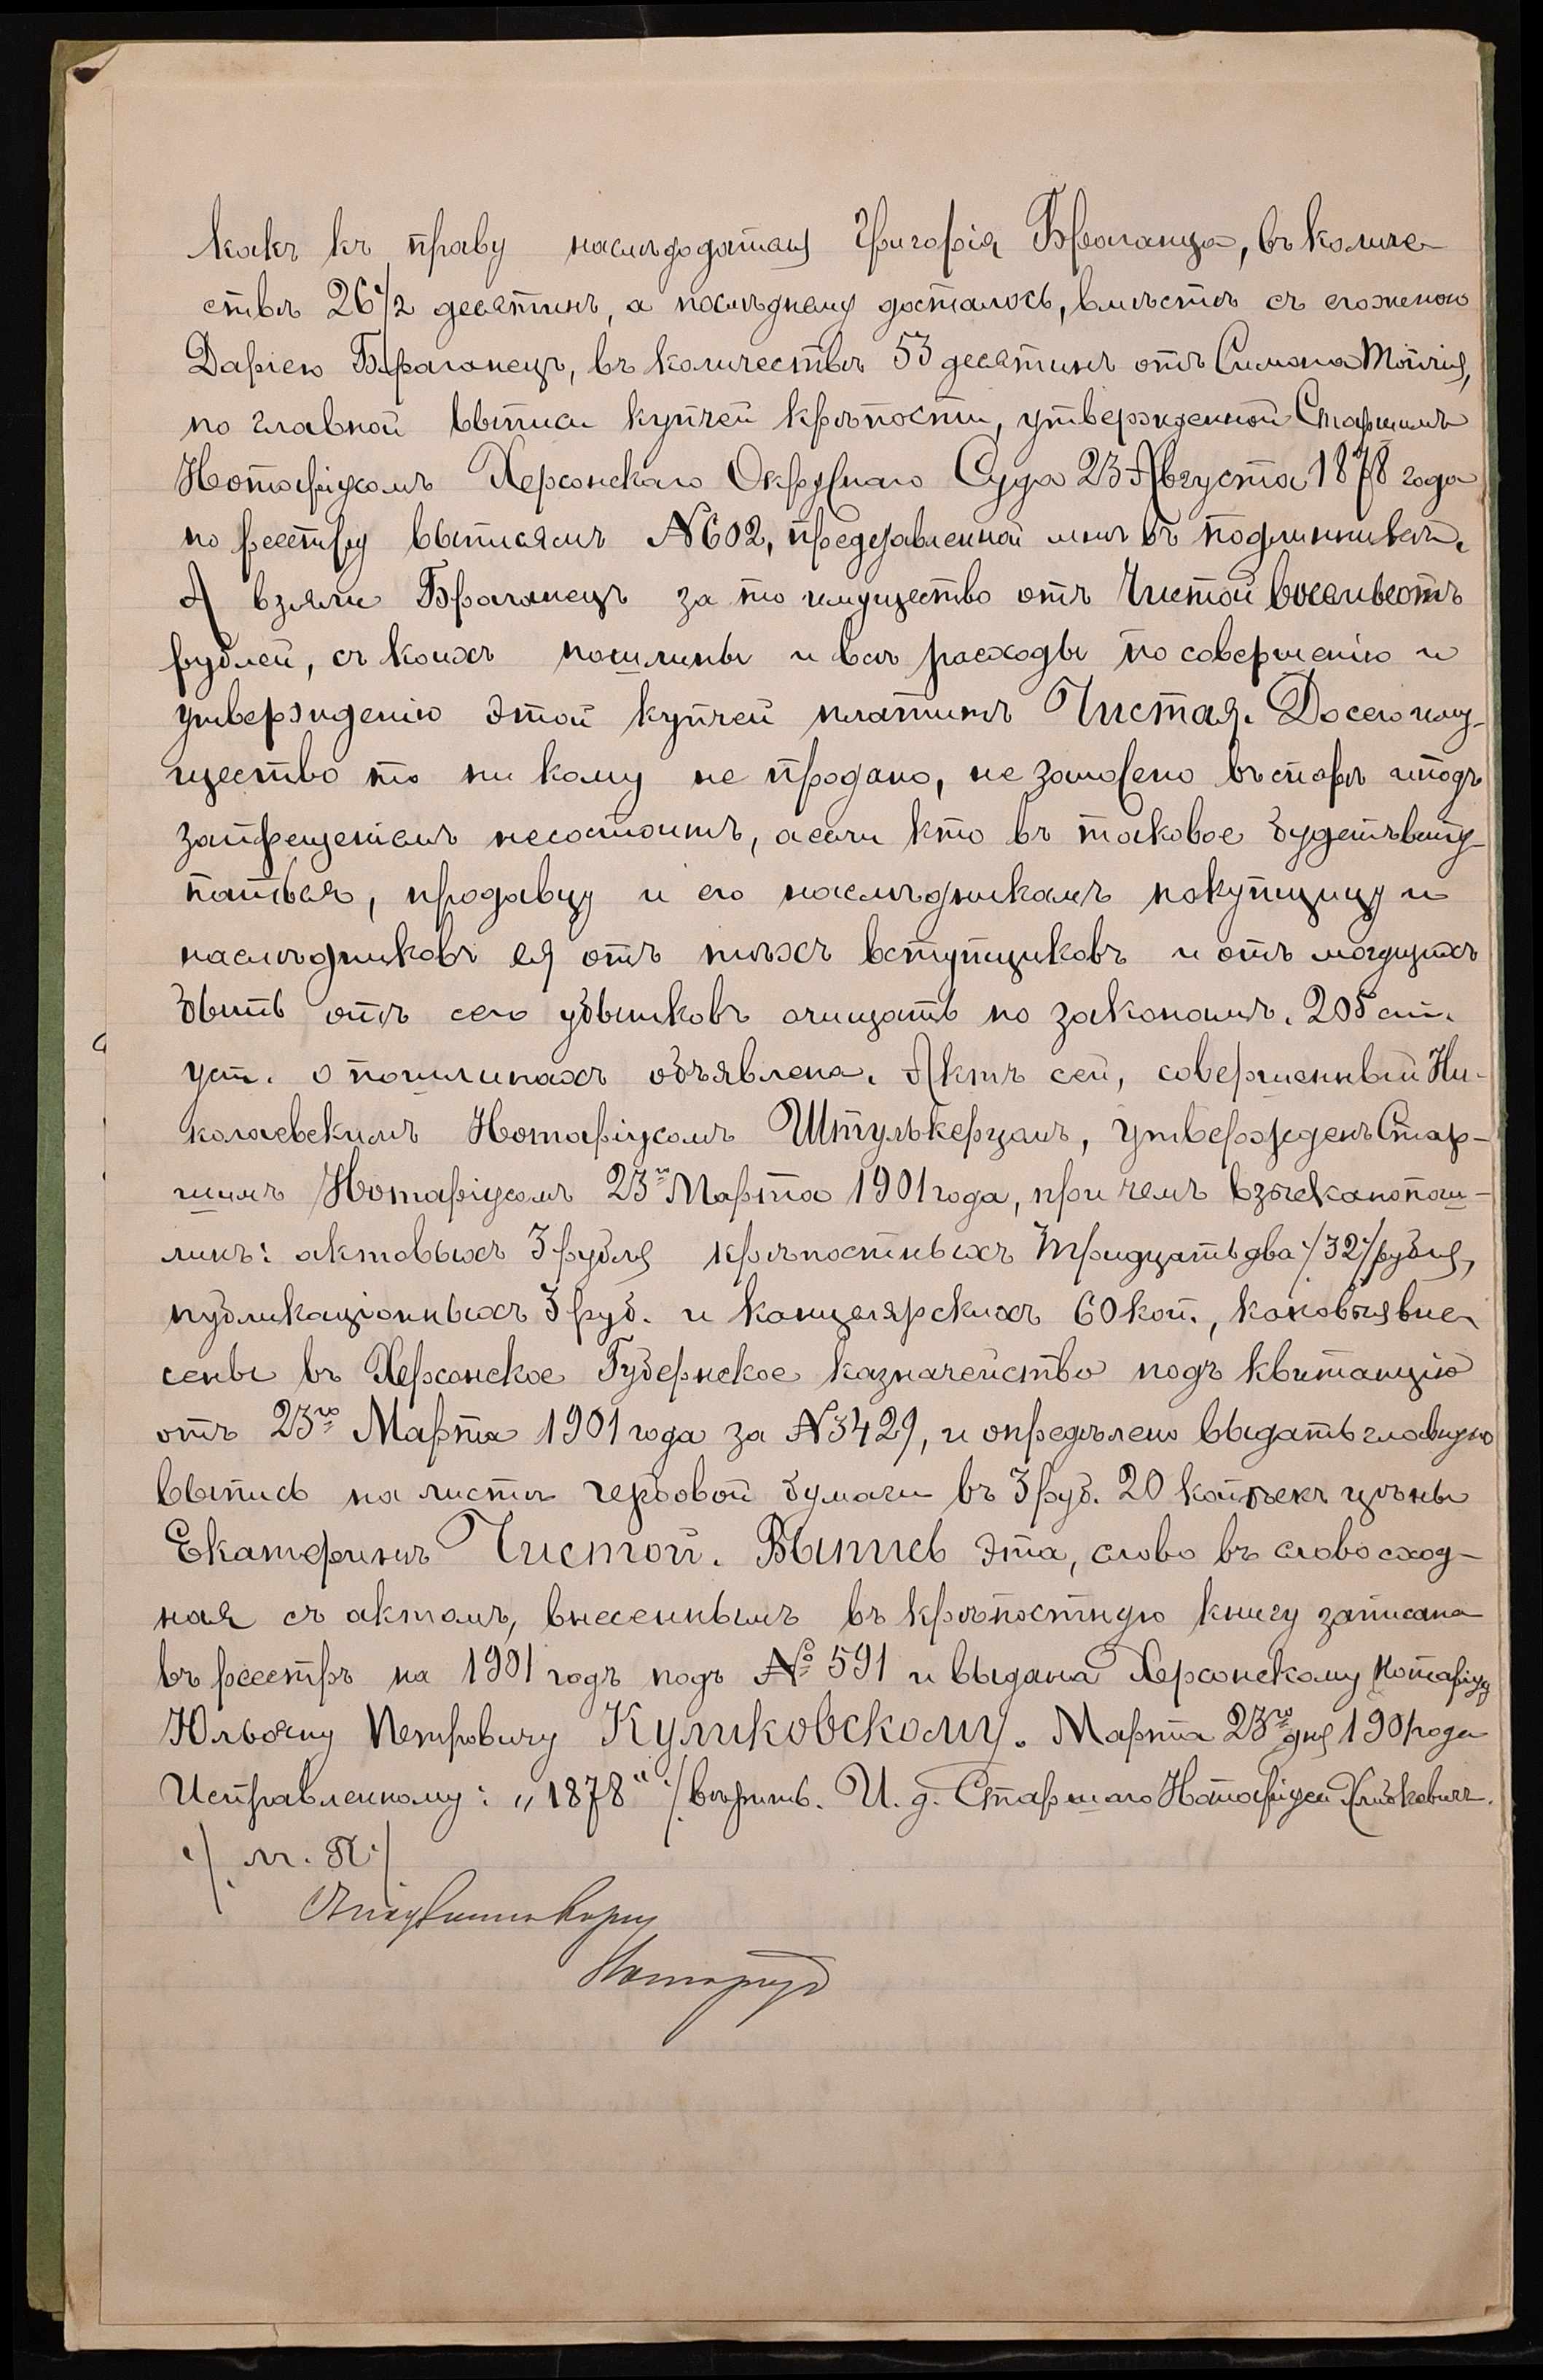 какъ къ праву наслѣдодателя Григорія Браганца, въ количе-
ствѣ 26 1/2 десятинъ, а послѣднему досталось, вмѣстѣ съ его женою
Дарьею Браганецъ, въ количествѣ 53 десятинъ отъ Симона
по главной выписи купчей крѣпости, утвержденной Старшимъ
Нотаріусомъ Херсонскаго Окружнаго Суда 23 Августа 1878 года
по реестру выписямъ №602, представленной мнѣ въ подлинникѣ.
А взяли Браганецъ за то имущество отъ Чистой восемьсотъ
рублей, съ коихъ пошлины и всѣ расходы по совершенію и
утвержденію этой купчей платитъ Чистая. До сего иму-
щество то ни кому не продано, не заложено въ спорѣ и подъ
запрещеніемъ не состоитъ, а если кто въ таковое будетъ всту-
паться, продавцу и его наслѣдникамъ покупщицу и
наслѣдниковъ ея отъ тѣхъ вступщиковъ и отъ могущихъ
быть отъ сего убытковъ очищать по законамъ. 205 ст.
уст. о пошлинахъ объявлена. Актъ сей, совершенный Ни-
колаевскимъ Нотаріусомъ Штулькерцомъ, утвержденъ Стар-
шимъ Нотаріусомъ 23го Марта 1901 года, при чемъ взыскано пош-
линъ: актовыхъ 3 рубля крѣпостныхъ тридцать два /32/ рубля,
публикаціонныхъ 3 руб. и канцелярскихъ 60 коп., каковыя вне-
сены въ Херсонское Губернское казначейство подъ квитанцію
отъ 23го Марта 1901 года за №3429, и опредѣлено выдать главную
выпись на листѣ гербовой бумаги въ 3 руб. 20 копѣекъ цѣны
Екатеринѣ Чистой. Выпись эта, слово въ слово сход-
ная съ актомъ, внесеннымъ въ крѣпостную книгу записана
въ реестръ на 1901 годъ подъ № 591 и выдана Херсонскому Нотаріусу
Юльяну Петровичу Куликовскому. Марта 23го дня 1901 года
Исправленному: „1878“ /вѣрить. И. д. Старшаго Нотаріуса
/ м. П /
Нотаріусъ